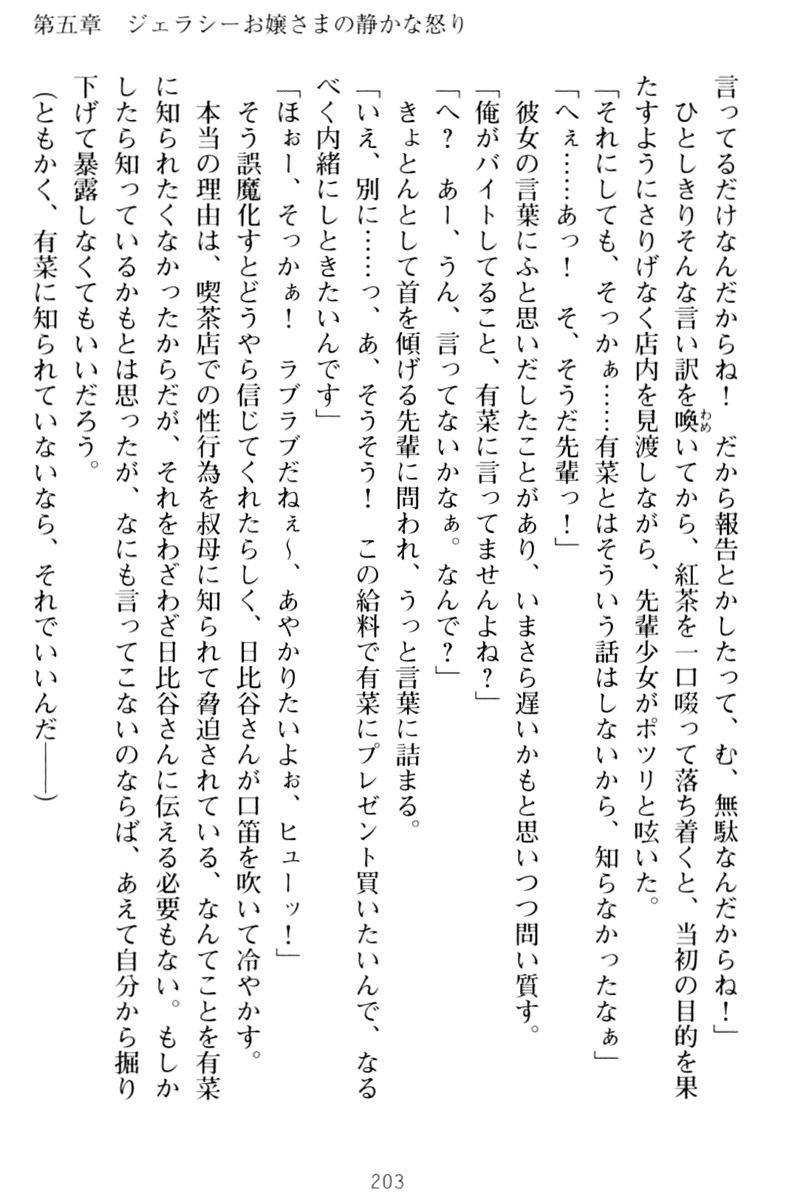 第五章　ジェラシーお嬢さまの静かな怒り
言ってるだけなんだからね！　だから報告とかしたって、む、無駄なんだからね！」
　ひとしきりそんな言い訳を喚いてから、紅茶を一口啜って落ち着くと、当初の目的を果
わめ
たすようにさりげなく店内を見渡しながら、先輩少女がポツリと呟いた。
「それにしても、そっかぁ……有菜とはそういう話はしないから、知らなかったなぁ」
「へぇ……あっ！　そ、そうだ先輩っ！」
　彼女の言葉にふと思いだしたことがあり、いまさら遅いかもと思いつつ問い質す。
「俺がバイトしてること、有菜に言ってませんよね？」
「へ？　あー、うん、言ってないかなぁ。なんで？」
　きょとんとして首を傾げる先輩に問われ、うっと言葉に詰まる。
「いえ、別に……っ、あ、そうそう！　この給料で有菜にプレゼント買いたいんで、なる
べく内緒にしときたいんです」
「ほぉー、そっかぁ！　ラブラブだねぇ～、あやかりたいよぉ、ヒューッ！」
　そう誤魔化すとどうやら信じてくれたらしく、日比谷さんが口笛を吹いて冷やかす。
　本当の理由は、喫茶店での性行為を叔母に知られて脅迫されている、なんてことを有菜
に知られたくなかったからだが、それをわざわざ日比谷さんに伝える必要もない。もしか
したら知っているかもとは思ったが、なにも言ってこないのならば、あえて自分から掘り
下げて暴露しなくてもいいだろう。
（ともかく、有菜に知られていないなら、それでいいんだ――）
203